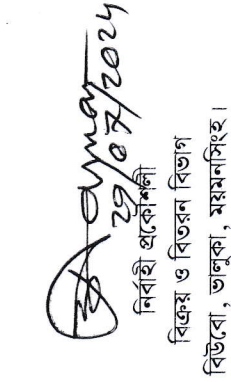 29/07/2024
নির্বাহী প্রকৌশলী
বিক্রয় ও বিতরন বিভাগ
বিউবো, ভালুকা, ময়মনসিংহ।